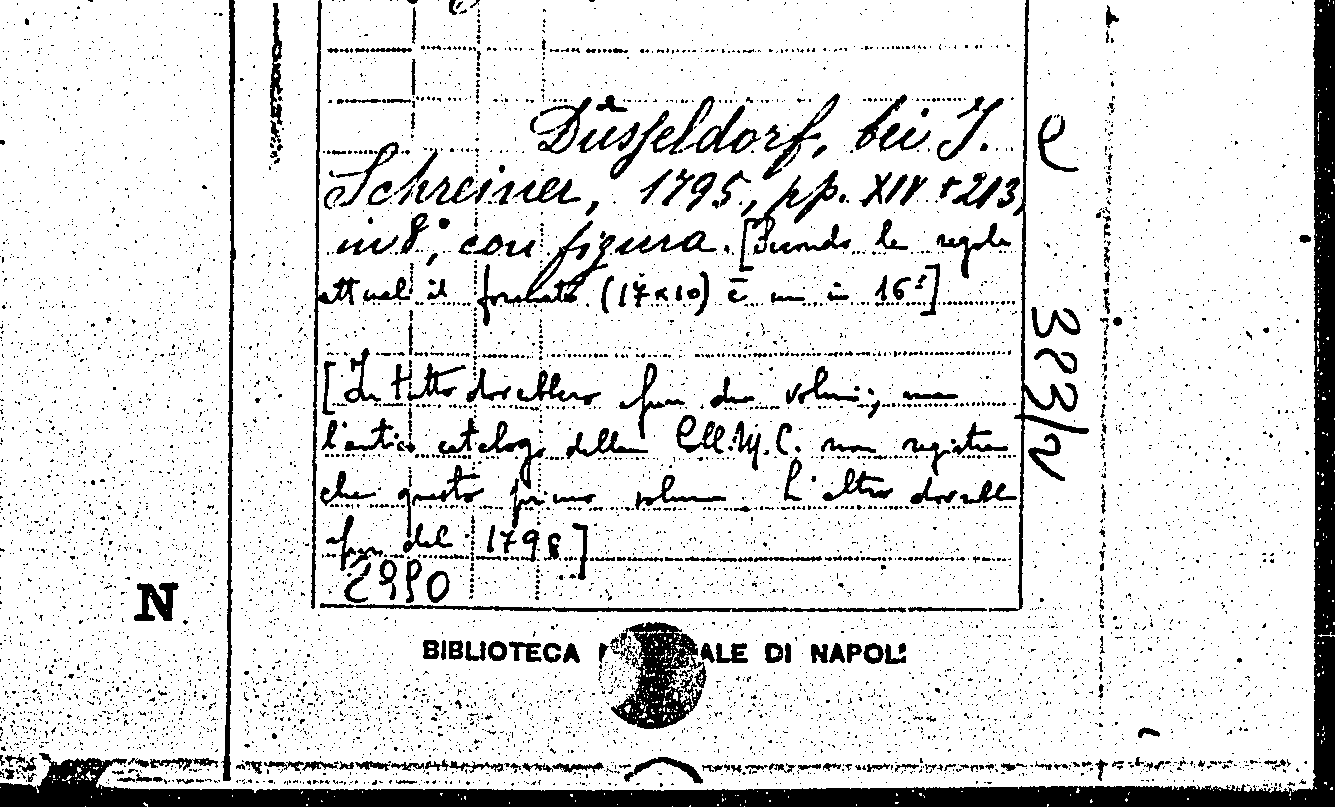 Düsseldorf, bei J.
Schreiner, 1795, pp. XIV + 213,
in 8°, con figura. [Secondo le regole
attuali il formato (17×10) è un in 16°]
[In tutto dovrebbero essere due volumi; ma
l'antico catalogo della Coll.M.C. non registra
che questo primo volume. L'altro dovrebbe
essere del 1798]
2980
N
BIBLIOTECA ALE DI NAPOLI
e
383/2